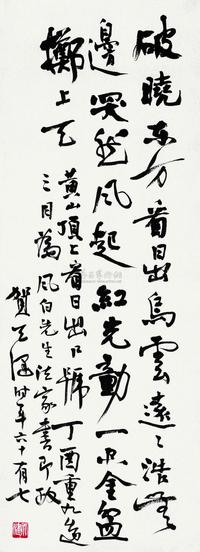 破曉东方看日出烏雲遠々浩無
邊突然風起紅光動一只金盆
擲上天
黄山頂上看日出口號丁酉重九後
三日為風白先生法家書即政
賀天健時年六十有七